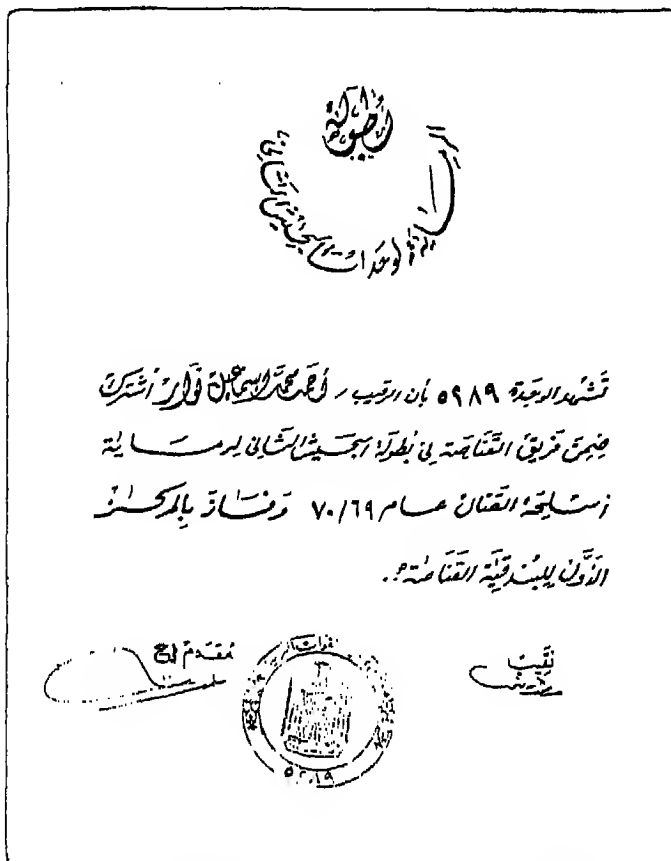 بطولة
الرماية لوحدات الجيش الثاني
تشهد الوحدة ٥٩٨٩ بأن الرقيب / أحمد محمد إسماعيل نوار اشترك
ضمن فريق القناصة في بطولة الجيش الثاني لرماية
أسلحة القتال عام ٧٠/٦٩ وفاز بالمركز
الأول للبندقية القناصة.
نقيب
مقدم أح